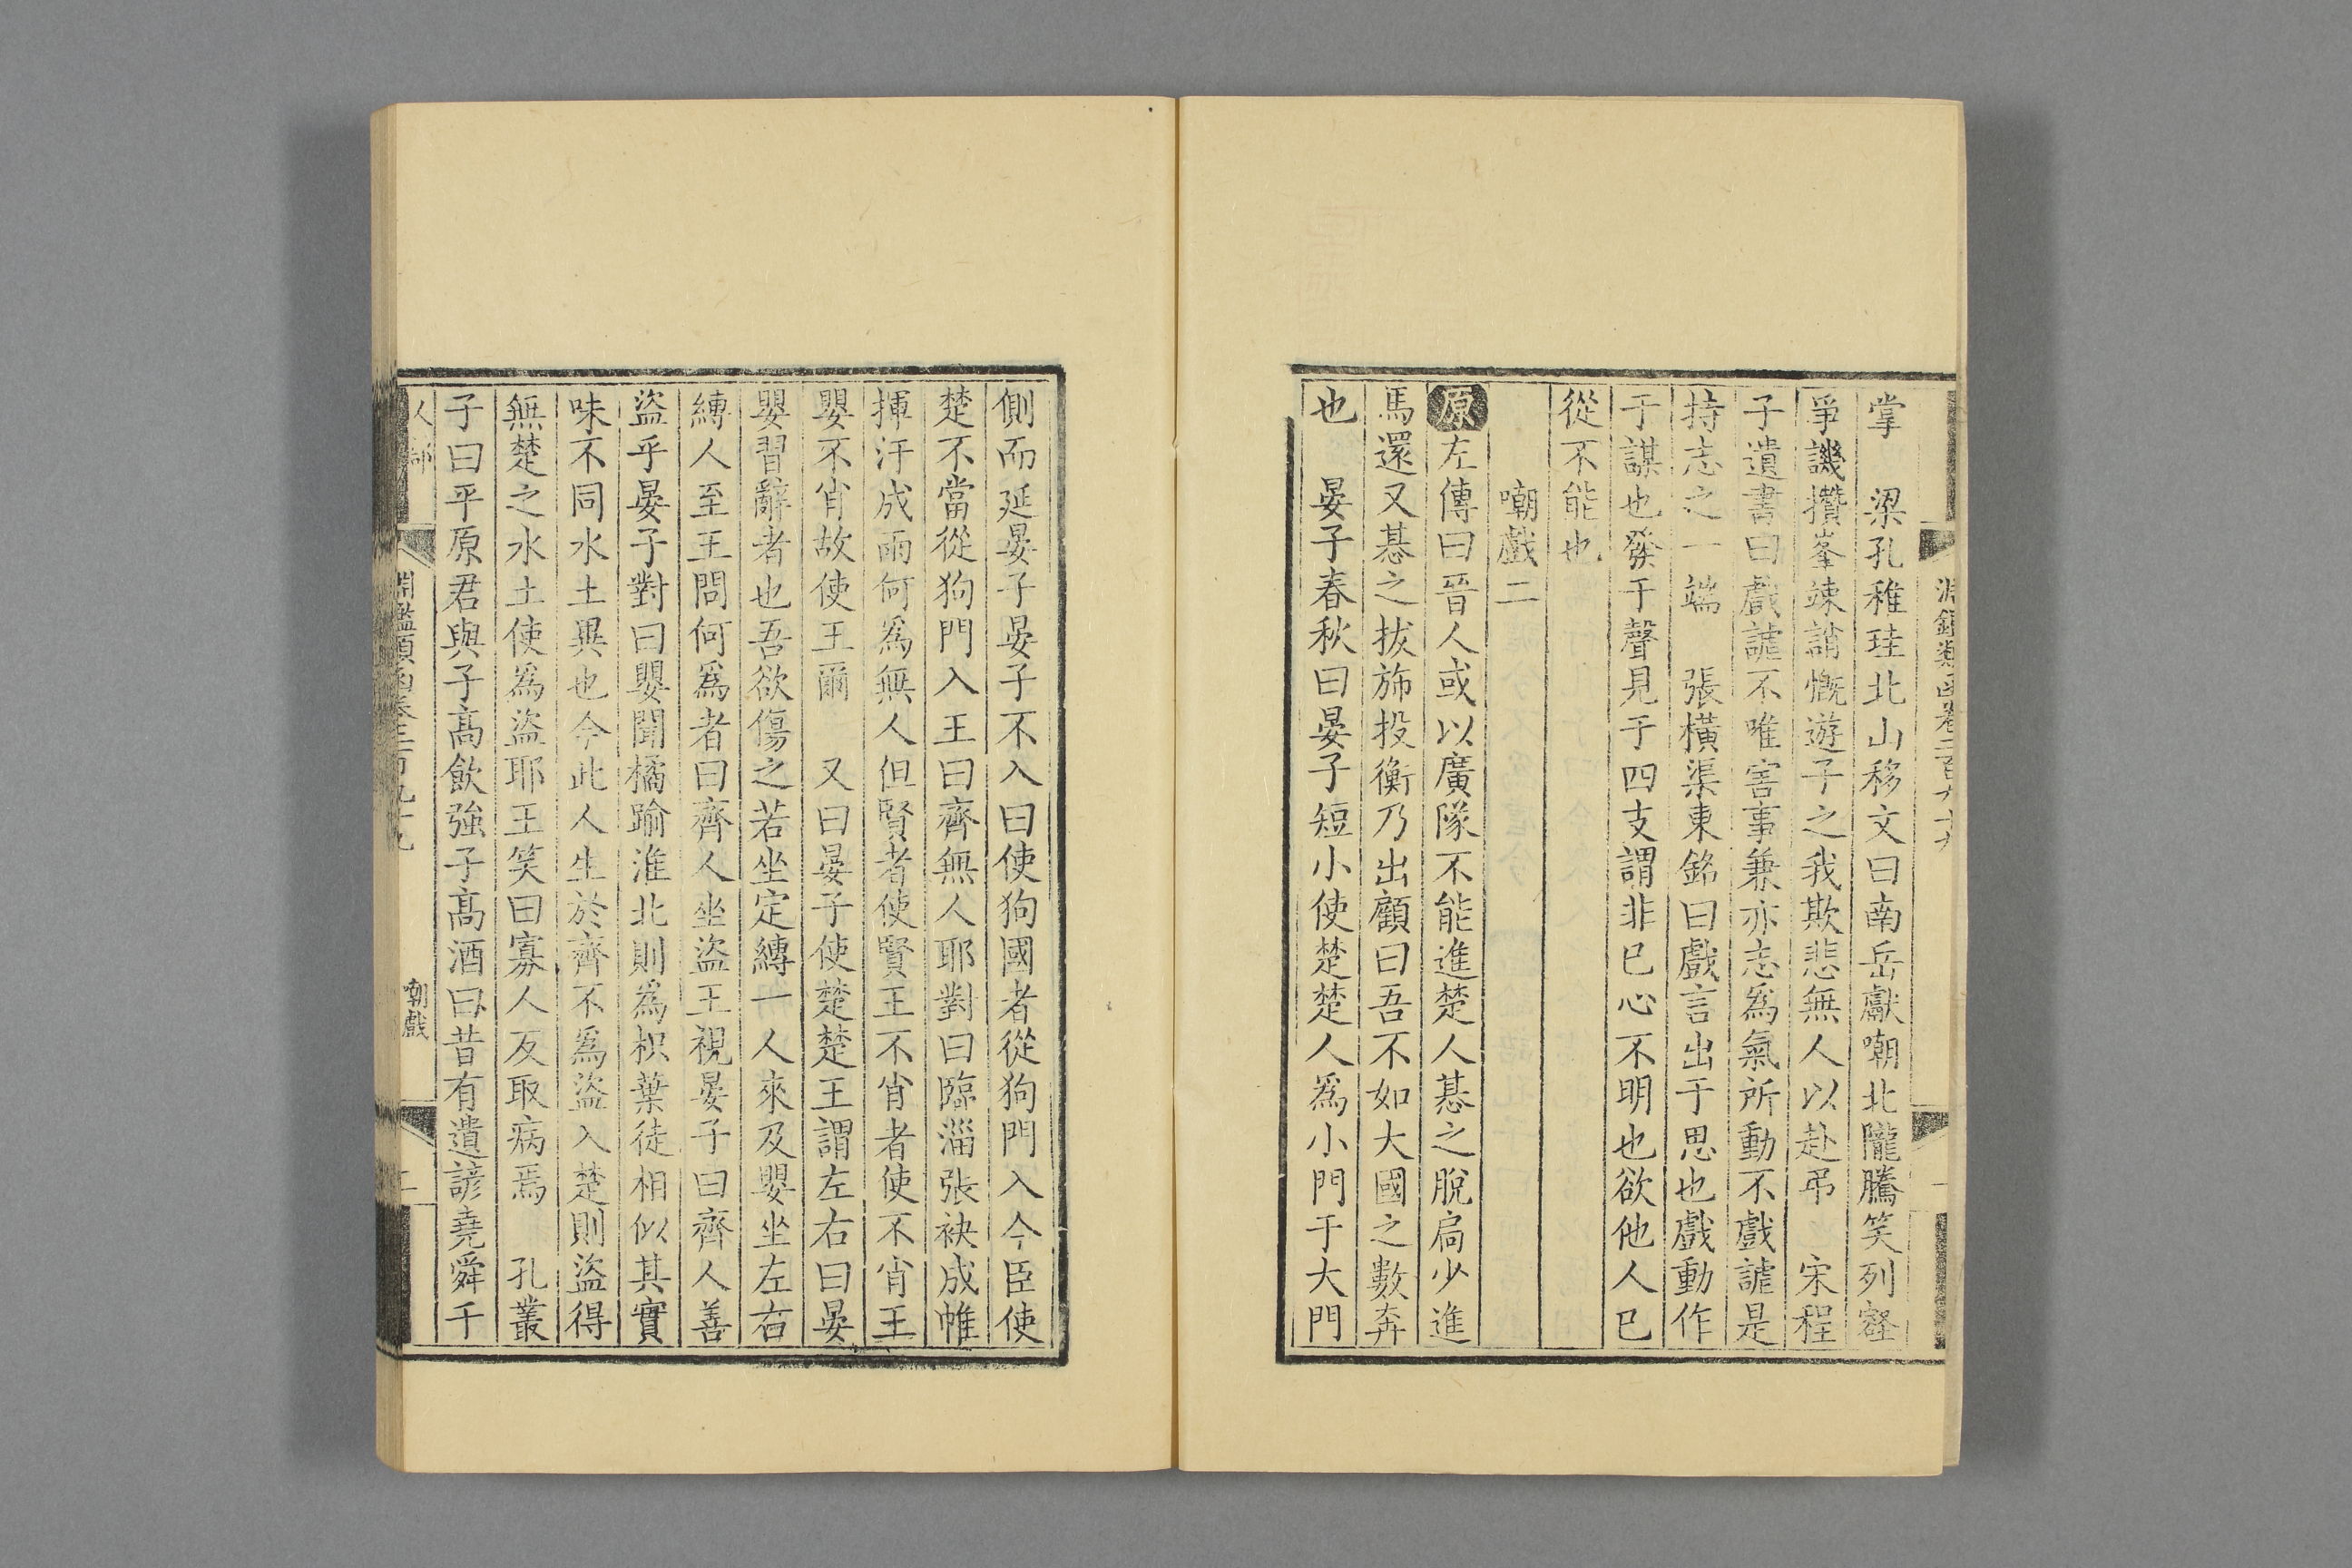 掌　梁孔稚珪北山移文曰南岳獻嘲北隴騰笑列壑
爭譏攢峯竦誚慨遊子之我欺悲無人以赴弔　宋程
子遺書曰戲謔不唯害事兼亦志為氣所動不戲謔是
持志之一端　張橫渠東銘曰戲言出于思也戲動作
于謀也發于聲見于四支謂非己心不明也欲他人已
從不能也
嘲戲二
原左傳曰晉人或以廣隊不能進楚人惎之脫扃少進
馬還又惎之拔斾投衡乃出顧曰吾不如大國之數奔
也　晏子春秋曰晏子短小使楚楚人爲小門于大門
側而延晏子晏子不入曰使狗國者從狗門入今臣使
楚不當從狗門入王曰齊無人耶對曰臨淄張袂成帷
揮汗成雨何爲無人但賢者使賢王不肖者使不肖王
嬰不肖故使王爾　又曰晏子使楚楚王謂左右曰晏
嬰習辭者也吾欲傷之若坐定縛一人來及嬰坐左右
縛人至王問何爲者曰齊人坐盜王視晏子曰齊人善
盜乎晏子對曰嬰聞橘踰淮北則爲枳葉徒相似其實
味不同水土異也今此人生於齊不爲盜入楚則盜得
無楚之水土使爲盜耶王笑曰寡人反取病焉　孔叢
子曰平原君與子高飲強子高酒曰昔有遺諺堯舜千
人部
淵鑑類函卷二百九十九
嘲戲
二